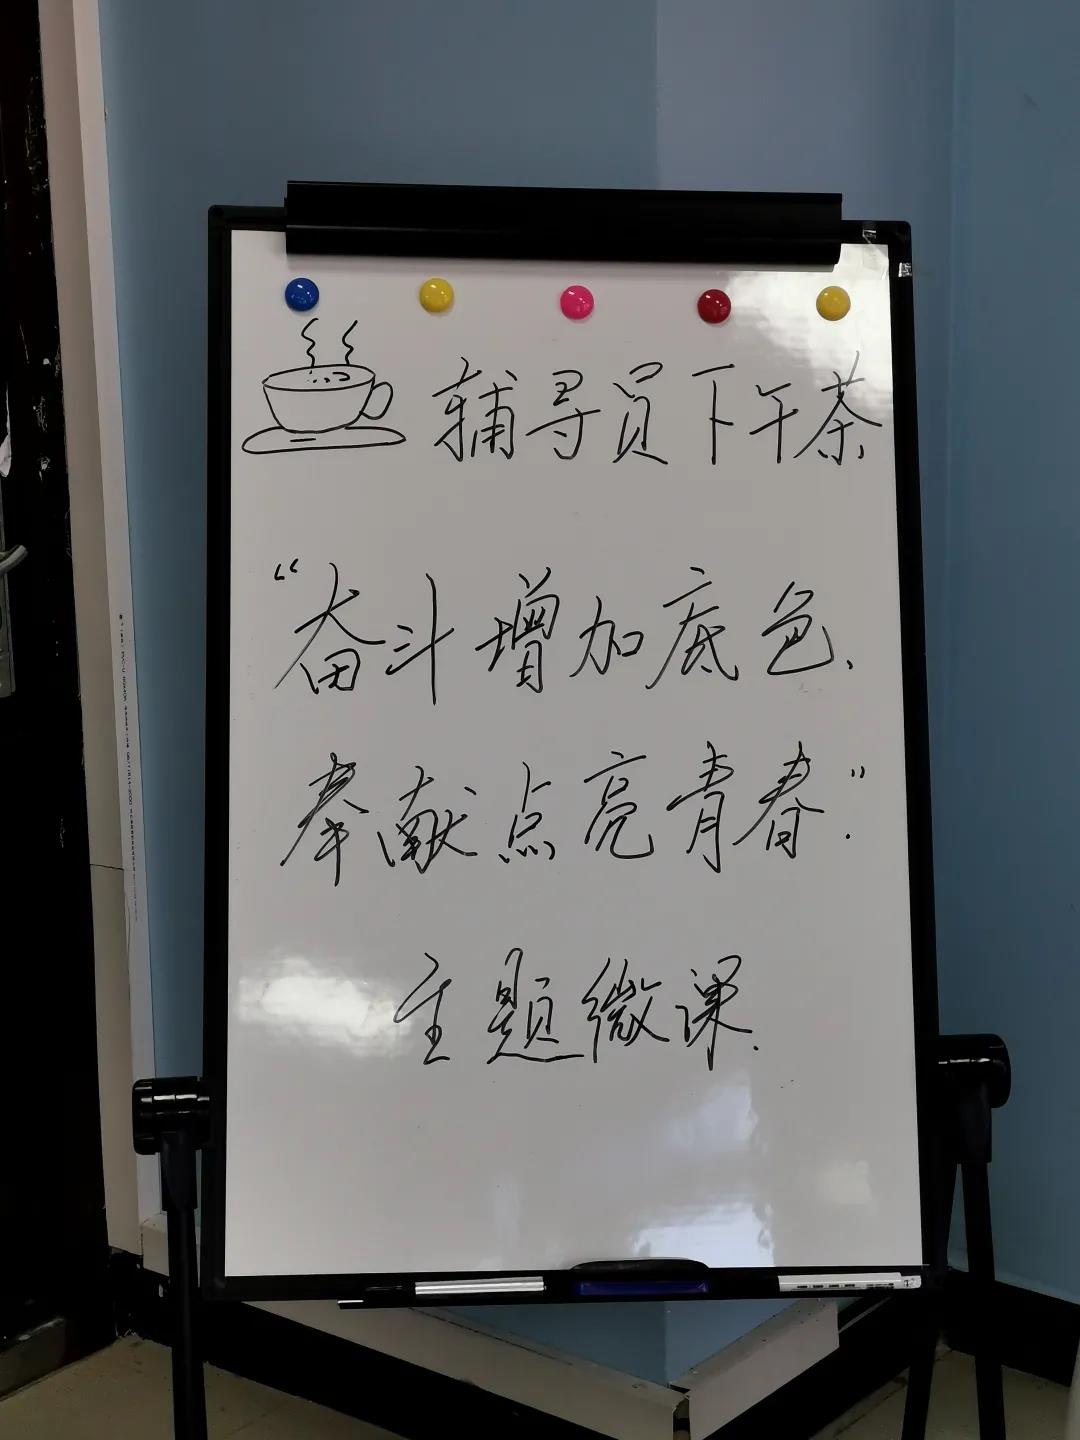 辅导员下午茶
“奋斗增加底色、
奉献点亮青春”.
主题微课.